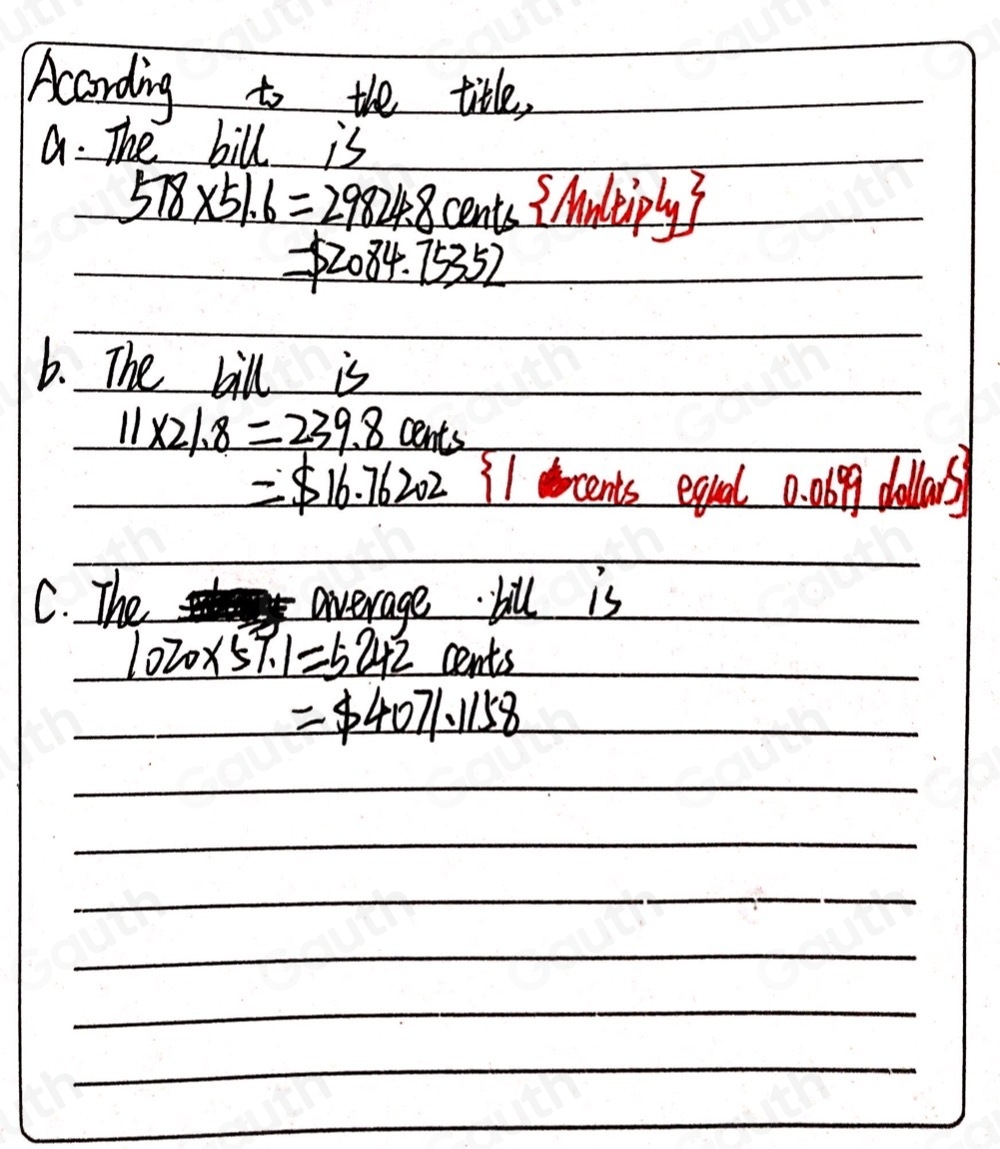 According to the title,
a. The bill is
578×51.6=29824.8 cents {Multiply}
=$2084.75352
b. The bill is
11×21.8=239.8 cents
=$16.76202 {1 cents equal 0.0699 dollars}
C. The average bill is
1020×57.1=5242 cents
=$4071.1158